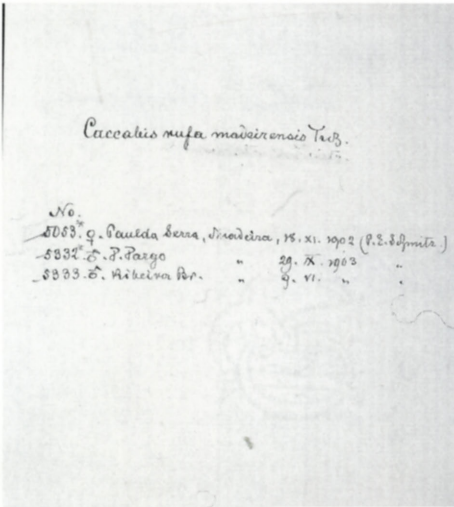 Caccabis rufa maderensis Tsch.
No.
5053.* ♀. Paul da Serra, Madeira, 18. XI. 1902 (P. E. Schmitz)
5332.* ♂. P. Pargo " 29. IX. 1903 "
5333. ♂. Ribeira Br. " 9. VI. " "